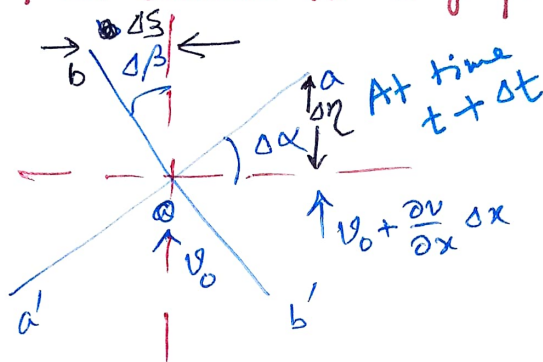 Δξ
Δβ
b
a
Δη
At time
t + Δt
Δα
v₀ + ∂v/∂x Δx
v₀
a'
b'